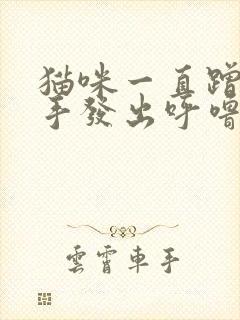 猫咪一直蹭
手發出呼嚕
雲霄車手